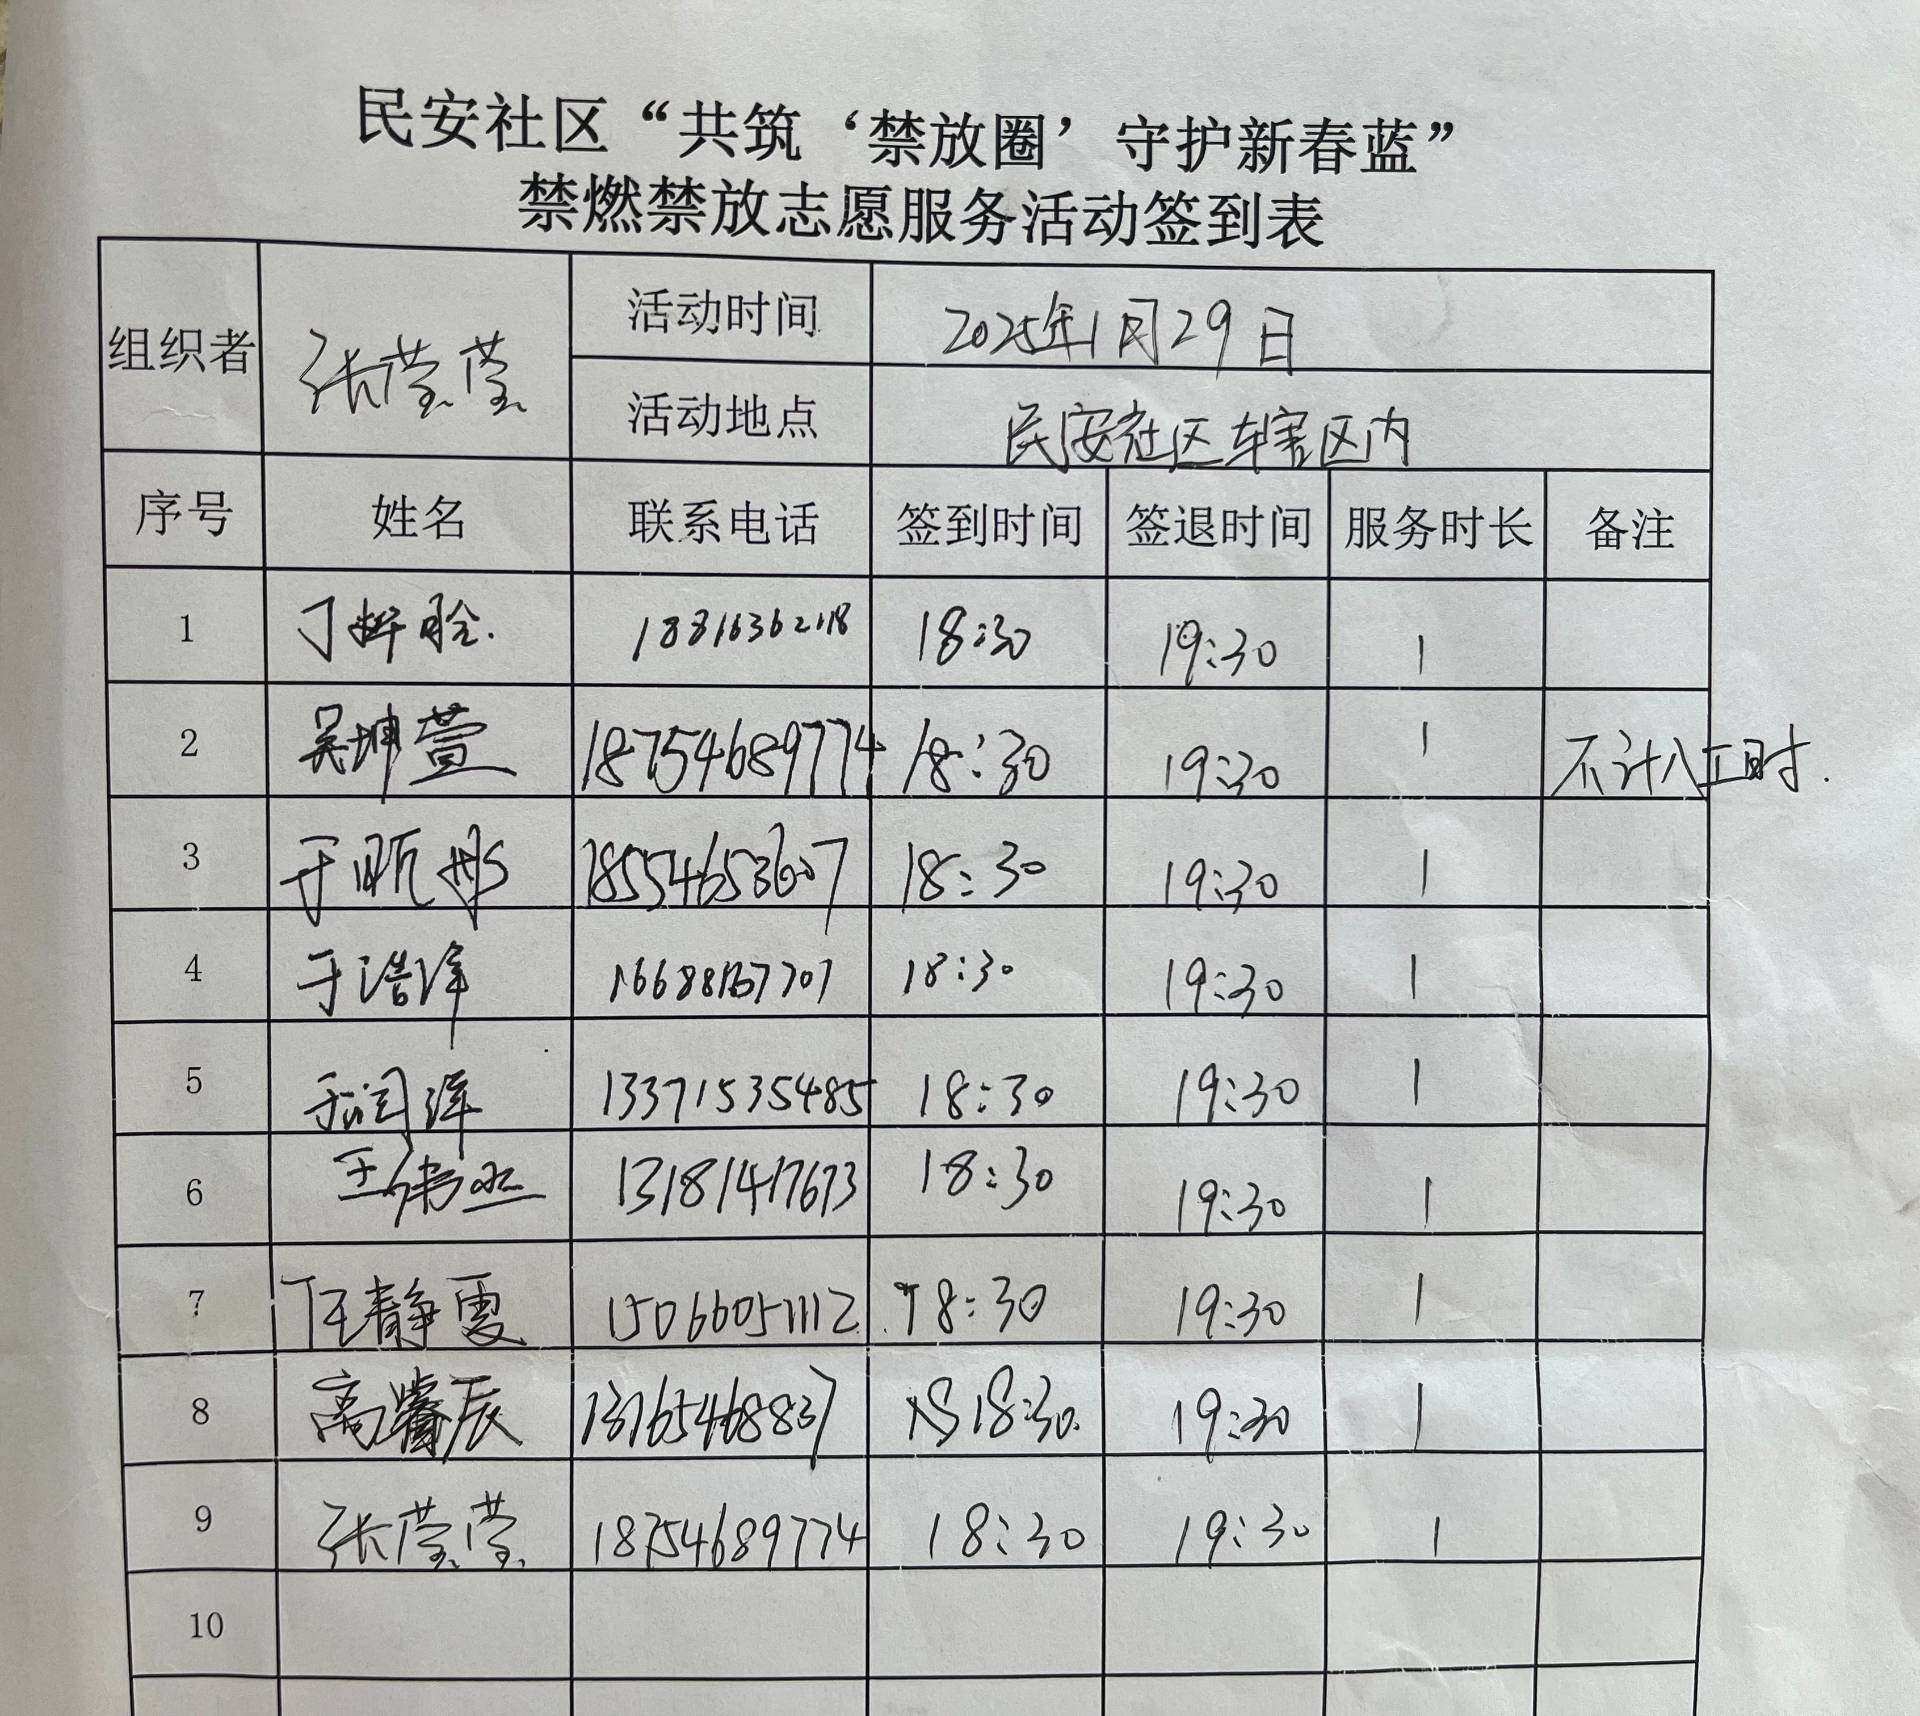 民安社区“共筑‘禁放圈’守护新春蓝”
禁燃禁放志愿服务活动签到表
组织者 张莹莹 活动时间 2025年1月29日
活动地点 民安社区辖区内
序号 姓名 联系电话 签到时间 签退时间 服务时长 备注
1 18:30 19:30 1
2 吴坤萱 18754689774 18:30 19:30 1 不计入工时.
3 18554653607 18:30 19:30 1
4 于浩洋 18:30 19:30 1
5 于润洋 13371535485 18:30 19:30 1
6 13181417673 18:30 19:30 1
7 任静霞 15066051112 18:30 19:30 1
8 高睿辰 18:30 19:30 1
9 张莹莹 18754689774 18:30 19:30 1
10